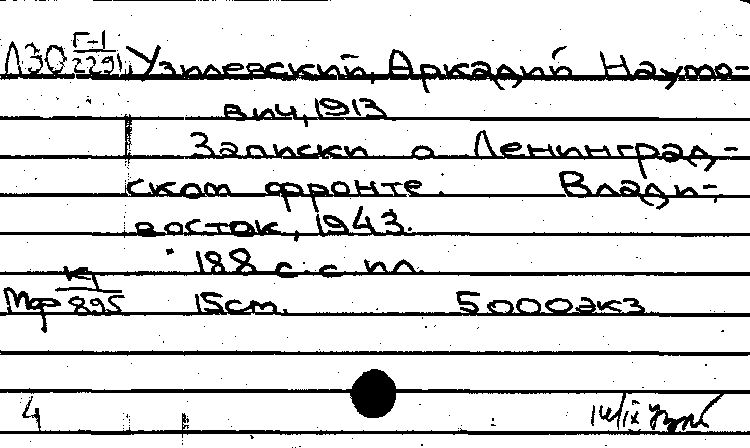 ЛЗО Г-1/2291 Узилевский, Аркадий Наумо-
вич, 1913
Записки о Ленинград-
ском фронте. Влади-
восток, 1943.
188 с. с ил.
Мф К1/895 15см. 5000экз
4